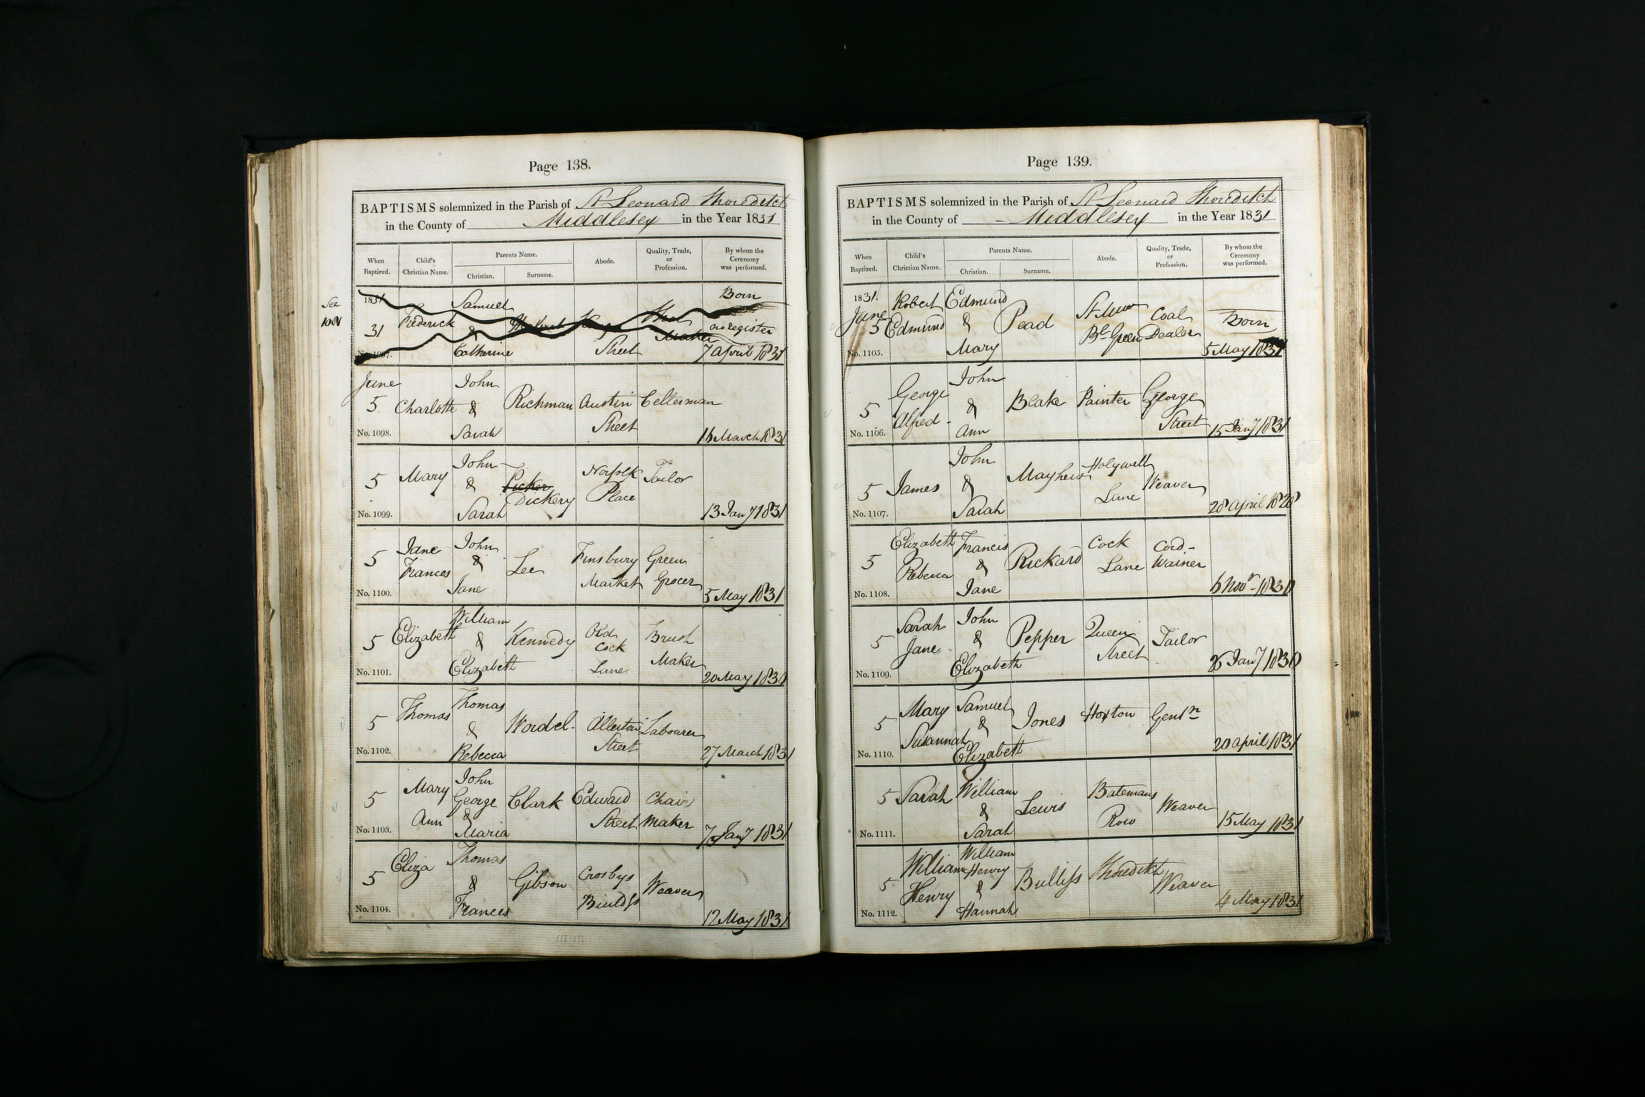 Page 138.
BAPTISMS solemnized in the Parish of St Leonard Shoreditch
in the County of Middlesex in the Year 1831
When Baptized. Child's Christian Name. Parents Name. Christian. Surname. Abode. Quality, Trade, or Profession. By whom the Ceremony was performed.
See
1831 Samuel Born
31 Frederick & Shoe on register
Catherine Street Maker 7 April 1831
June John
5 Charlotte & Rickman Austin Cellerman
No. 1098. Sarah Street 16 March 1831
John Norfolk
5 Mary & Dickery Place Tailor
No. 1099. Sarah 13 Jany 1831
Jane John Finsbury Green
5 Frances & Lee Market Grocer
No. 1100. Jane 5 May 1831
William Old Brush
5 Elizabeth & Kennedy Cock Maker
No. 1101. Elizabeth Lane 20 May 1831
Thomas
5 Thomas & Wordel Labourer
No. 1102. Rebecca Street 27 March 1831
John
5 Mary George Clark Edward Chair
Ann & Street Maker
No. 1103. Maria 7 Jany 1831
Eliza Thomas Crosbys
5 & Gibson Buildgs Weaver
No. 1104. Frances 12 May 1831
Page 139.
BAPTISMS solemnized in the Parish of St Leonard Shoreditch
in the County of Middlesex in the Year 1831
When Baptized. Child's Christian Name. Parents Name. Christian. Surname. Abode. Quality, Trade, or Profession. By whom the Ceremony was performed.
1831. Robert Edmund St Mw Coal Born
June 5 Edmund & Pead Bl Green Dealer
No. 1105. Mary 5 May 1831
George John
5 Alfred & Blake Painter George
No. 1106. Ann Street 15 Jany 1831
John Holywell
5 James & Mayhew Lane Weaver
No. 1107. Sarah 28 April 1828
Elizabeth Francis Cock Cord-
5 Rebecca & Rickard Lane Wainer
No. 1108. Jane 6 Novr 1830
Sarah John Queen
5 Jane & Pepper Street Tailor
No. 1109. Elizabeth 26 Jany 1830
Mary Samuel
5 Susannah & Jones Hoxton Gentn
No. 1110. Elizabeth 20 April 1831
William Batemans
5 Sarah & Lewis Row Weaver
No. 1111. Sarah 15 May 1831
William
5 William Henry Shoreditch
Henry & Weaver
No. 1112. Hannah 4 May 1831